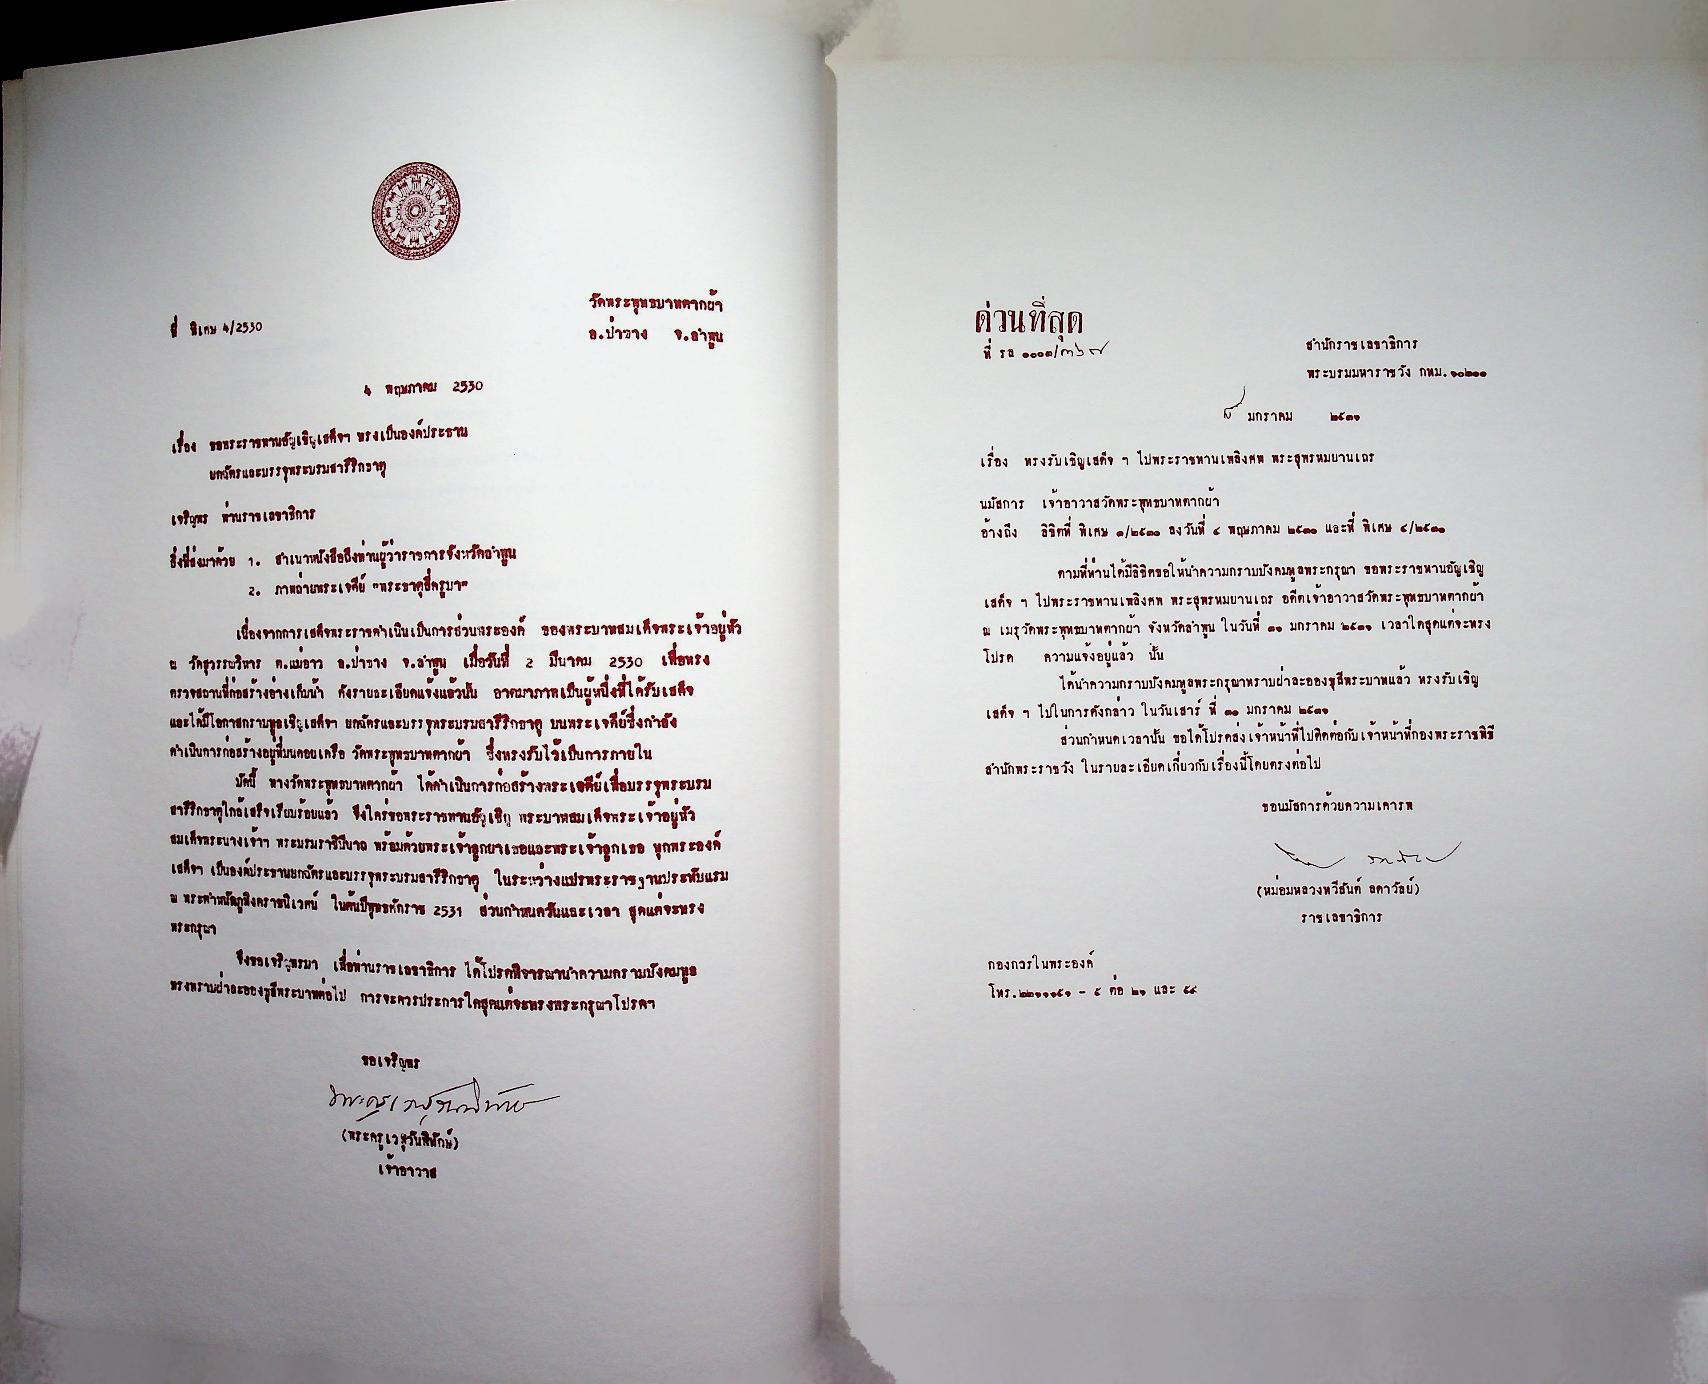 วัดพระพุทธบาทตากผ้า
ที่ พิเศษ 4/2530
อ.ป่าซาง จ.ลำพูน
4 พฤษภาคม 2530
เรื่อง ขอพระราชทานอัญเชิญเสด็จฯ ทรงเป็นองค์ประธาน
ยกฉัตรและบรรจุพระบรมสารีริกธาตุ
เจริญพร ท่านราชเลขาธิการ
สิ่งที่ส่งมาด้วย 1. สำเนาหนังสือถึงท่านผู้ว่าราชการจังหวัดลำพูน
2. ภาพถ่ายพระเจดีย์ "พระธาตุสี่ครูบา"
เนื่องจากการเสด็จพระราชดำเนินเป็นการส่วนพระองค์ ของพระบาทสมเด็จพระเจ้าอยู่หัว
ณ วัดสุวรรณวิหาร ต.แม่อาว อ.ป่าซาง จ.ลำพูน เมื่อวันที่ 2 มีนาคม 2530 เพื่อทรง
ตรวจสถานที่ก่อสร้างอ่างเก็บน้ำ ดังรายละเอียดแจ้งแล้วนั้น อาตมาภาพเป็นผู้หนึ่งที่ได้รับเสด็จ
และได้มีโอกาสกราบทูลเชิญเสด็จฯ ยกฉัตรและบรรจุพระบรมสารีริกธาตุ บนพระเจดีย์ซึ่งกำลัง
ดำเนินการก่อสร้างอยู่ที่บนดอยเครือ วัดพระพุทธบาทตากผ้า ซึ่งทรงรับไว้เป็นการภายใน
บัดนี้ ทางวัดพระพุทธบาทตากผ้า ได้ดำเนินการก่อสร้างพระเจดีย์เพื่อบรรจุพระบรม
สารีริกธาตุใกล้เสร็จเรียบร้อยแล้ว จึงใคร่ขอพระราชทานอัญเชิญ พระบาทสมเด็จพระเจ้าอยู่หัว
สมเด็จพระนางเจ้าฯ พระบรมราชินีนาถ พร้อมด้วยพระเจ้าลูกยาเธอและพระเจ้าลูกเธอ ทุกพระองค์
เสด็จฯ เป็นองค์ประธานยกฉัตรและบรรจุพระบรมสารีริกธาตุ ในระหว่างแปรพระราชฐานประทับแรม
ณ พระตำหนักภูพิงคราชนิเวศน์ ในต้นปีพุทธศักราช 2531 ส่วนกำหนดวันและเวลา สุดแต่จะทรง
พระกรุณา
จึงขอเจริญพรมา เพื่อท่านราชเลขาธิการ ได้โปรดพิจารณานำความกราบบังคมทูล
ทรงทราบฝ่าละอองธุลีพระบาทต่อไป การจะควรประการใดสุดแต่จะทรงพระกรุณาโปรดฯ
ขอเจริญพร
(พระครูเวฬุวันพิทักษ์)
เจ้าอาวาส
ด่วนที่สุด
ที่ รล ๐๐๐๓/๓๖๗
สำนักราชเลขาธิการ
พระบรมมหาราชวัง กทม.๑๐๒๐๐
๘ มกราคม ๒๕๓๑
เรื่อง ทรงรับเชิญเสด็จ ฯ ไปพระราชทานเพลิงศพ พระสุพรหมยานเถร
นมัสการ เจ้าอาวาสวัดพระพุทธบาทตากผ้า
อ้างถึง ลิขิตที่ พิเศษ ๑/๒๕๓๐ ลงวันที่ ๔ พฤษภาคม ๒๕๓๐ และที่ พิเศษ ๔/๒๕๓๐
ตามที่ท่านได้มีลิขิตขอให้นำความกราบบังคมทูลพระกรุณา ขอพระราชทานอัญเชิญ
เสด็จ ฯ ไปพระราชทานเพลิงศพ พระสุพรหมยานเถร อดีตเจ้าอาวาสวัดพระพุทธบาทตากผ้า
ณ เมรุวัดพระพุทธบาทตากผ้า จังหวัดลำพูน ในวันที่ ๓๐ มกราคม ๒๕๓๑ เวลาใดสุดแต่จะทรง
โปรด ความแจ้งอยู่แล้ว นั้น
ได้นำความกราบบังคมทูลพระกรุณาทราบฝ่าละอองธุลีพระบาทแล้ว ทรงรับเชิญ
เสด็จ ฯ ไปในการดังกล่าว ในวันเสาร์ ที่ ๓๐ มกราคม ๒๕๓๑
ส่วนกำหนดเวลานั้น ขอได้โปรดส่งเจ้าหน้าที่ไปติดต่อกับเจ้าหน้าที่กองพระราชพิธี
สำนักพระราชวัง ในรายละเอียดเกี่ยวกับเรื่องนี้โดยตรงต่อไป
ขอนมัสการด้วยความเคารพ
(หม่อมหลวงทวีสันต์ ลดาวัลย์)
ราชเลขาธิการ
กองการในพระองค์
โทร.๒๒๑๑๑๕๑ - ๕ ต่อ ๒๑ และ ๕๔